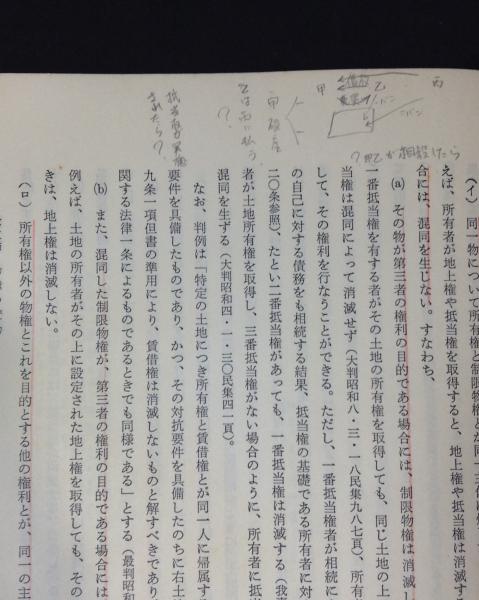 丙
甲
乙
甲破産
?
抵当
されたら?
(イ) 同一物について所有権と制限物権とが同一
えば、所有者が地上権や抵当権を取得すると、地上権や抵当権は消滅
合には、混同を生じない。すなわち、
(a) その物が第三者の権利の目的である場合には、制限物権は消滅し
一番抵当権を有する者がその土地の所有権を取得しても、同じ土地の上
当権は混同によって消滅せず(大判昭和八・三・一八民集九八七頁)、所有者
して、その権利を行なうことができる。ただし、一番抵当権者が相続に
の自己に対する債務をも相続する結果、抵当権の基礎である所有者に対
二〇条参照)、たとい二番抵当権があっても、一番抵当権は消滅する(我妻
者が土地所有権を取得し、三番抵当権がない場合のように、所有者に抵当
混同を生ずる(大判昭和四・一・三〇民集四一頁)。
なお、判例は「特定の土地につき所有権と賃借権とが同一人に帰属す
要件を具備したものであり、かつ、その対抗要件を具備したのちに右土
九条一項但書の準用により、賃借権は消滅しないものと解すべきであり
関する法律一条によるものであるときでも同様である」とする(最判昭和
(b) また、混同した制限物権が、第三者の権利の目的である場合には
例えば、土地の所有者がその上に設定された地上権を取得しても、その
きは、地上権は消滅しない。
(ロ) 所有権以外の物権とこれを目的とする他の権利とが、同一の主